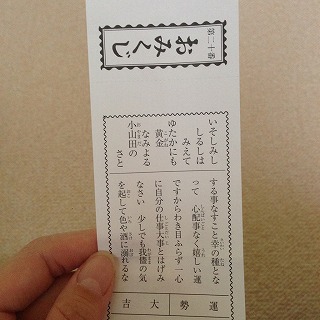 第二十番
おみくじ
いそしみし
しるしは
みえて
ゆたかにも
黄金
なみよる
小山田の
さと
する事なすこと幸の種とな
って 心配事なく嬉しい運
ですからわき目ふらず一心
に自分の仕事大事とはげみ
なさい 少しでも我儘の気
を起して色や酒に溺れるな
運勢 大吉